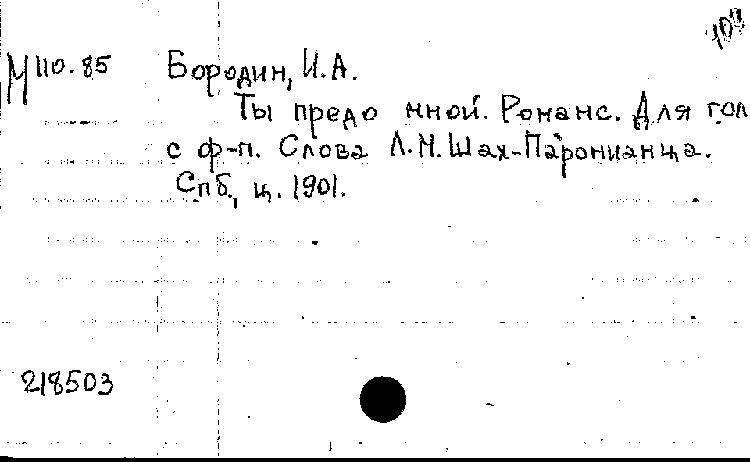 М 110.85 Бородин, И.А.
Ты предо мной. Романс. Для гол
с ф-п. Слова Л.М. Шах-Паронианца.
Спб., ц. 1901.
218503